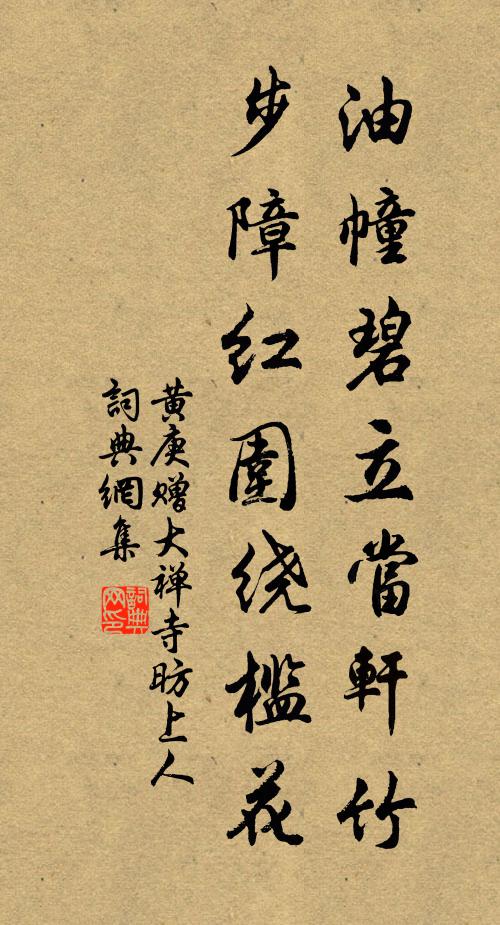 油幢碧立當軒竹
步障红圍绕檻花
黄庚赠大禅寺昉上人
詞典網集
詞典网印